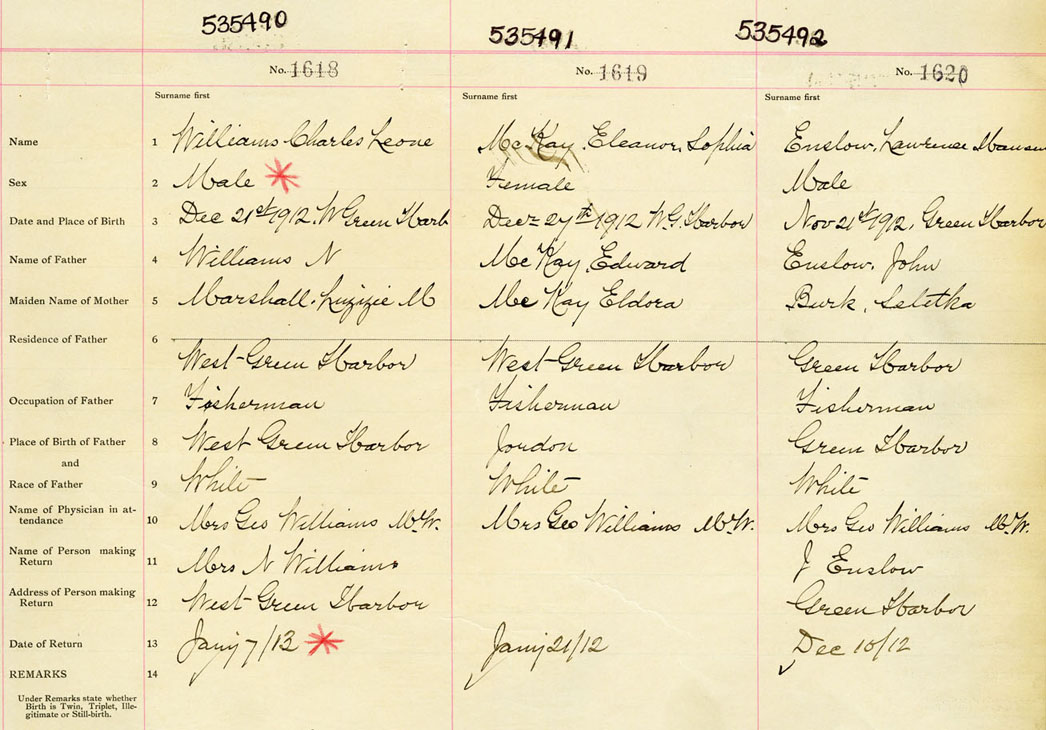 535490 535491 535492
No. 1618 No. 1619 No. 1620
Surname first Surname first Surname first
Name 1 Williams Charles Leone McKay, Eleanor, Sophia Enslow, Lawrence
Sex 2 Male Female Male
Date and Place of Birth 3 Dec 21st 1912. W Green Harb Dec 27th 1912 W.G. Harbor Nov 21st 1912, Green Harbor
Name of Father 4 Williams N McKay, Edward Enslow, John
Maiden Name of Mother 5 Marshall, Lizzie M McKay Eldora Burk, Seletka
Residence of Father 6
West-Green Harbor West-Green Harbor Green Harbor
Occupation of Father 7 Fisherman Fisherman Fisherman
Place of Birth of Father 8 West Green Harbor Jordon Green Harbor
and
Race of Father 9 White White White
Name of Physician in at-
tendance 10 Mrs Geo Williams M.W. Mrs Geo Williams M.W. Mrs Geo Williams M.W.
Name of Person making
Return 11 Mrs N Williams J Enslow
Address of Person making
Return 12 West-Green Harbor Green Harbor
Date of Return 13 Jany 7/13 Jany 21/12 Dec 10/12
REMARKS 14
Under Remarks state whether
Birth is Twin, Triplet, Ille-
gitimate or Still-birth.